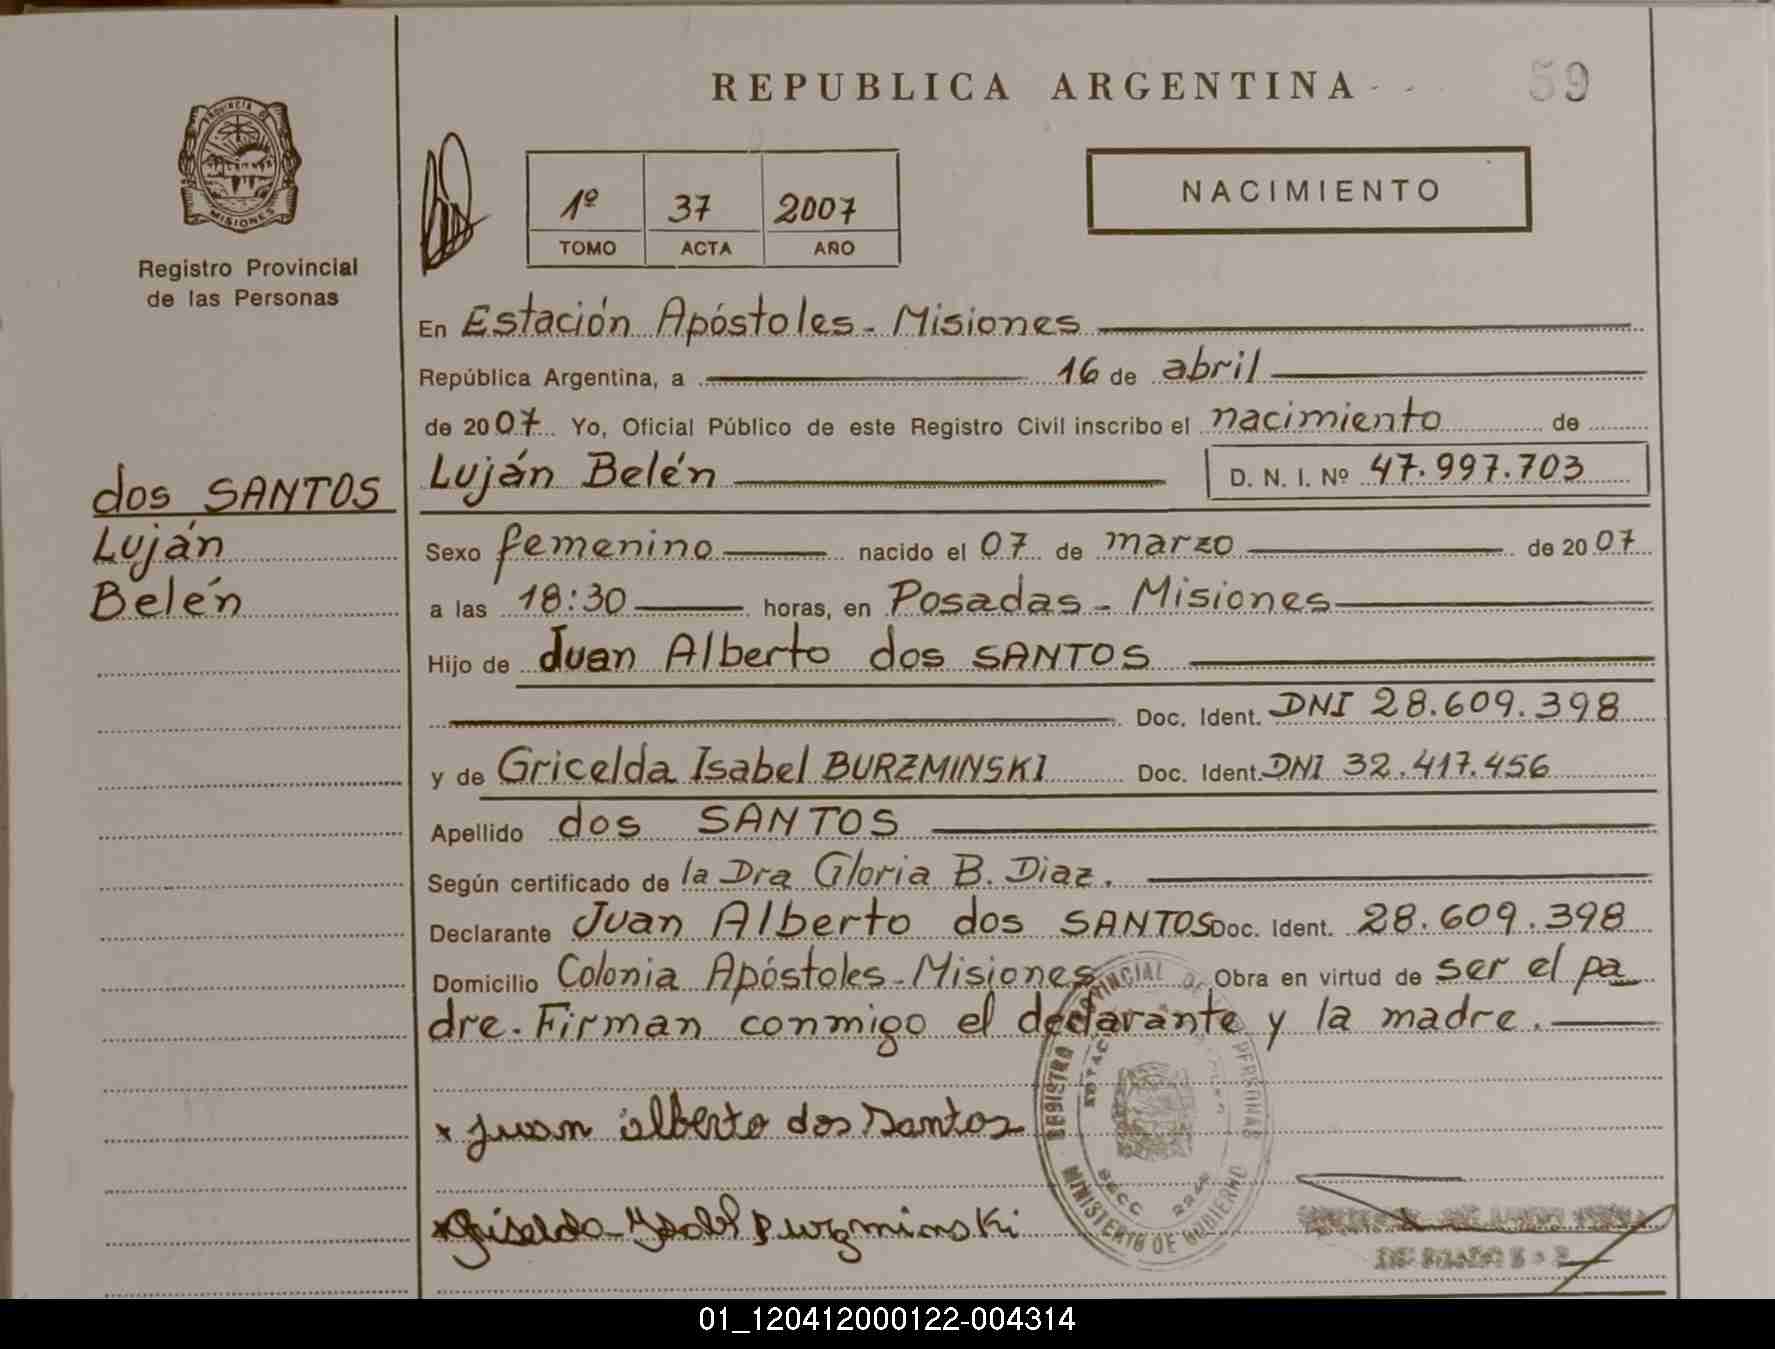 REPUBLICA ARGENTINA
59
PROVINCIA DE
MISIONES
Registro Provincial
de las Personas
1º 37 2007
TOMO ACTA AÑO
NACIMIENTO
En Estación Apóstoles - Misiones
República Argentina, a 16 de abril
de 2007 Yo, Oficial Público de este Registro Civil inscribo el nacimiento de
Luján Belén D. N. I. Nº 47.997.703
dos SANTOS
Luján
Belén
Sexo femenino nacido el 07 de marzo de 2007
a las 18:30 horas, en Posadas - Misiones
Hijo de Juan Alberto dos SANTOS
Doc. Ident. DNI 28.609.398
y de Gricelda Isabel BURZMINSKI Doc. Ident. DNI 32.417.456
Apellido dos SANTOS
Según certificado de la Dra Gloria B. Diaz.
Declarante Juan Alberto dos SANTOS Doc. Ident. 28.609.398
Domicilio Colonia Apóstoles - Misiones Obra en virtud de ser el pa
dre. Firman conmigo el declarante y la madre.
REGISTRO PROVINCIAL DE LAS PERSONAS
MINISTERIO DE GOBIERNO
x juan alberto dos Santos
x Griselda Ysabel Burzminski
01_120412000122-004314